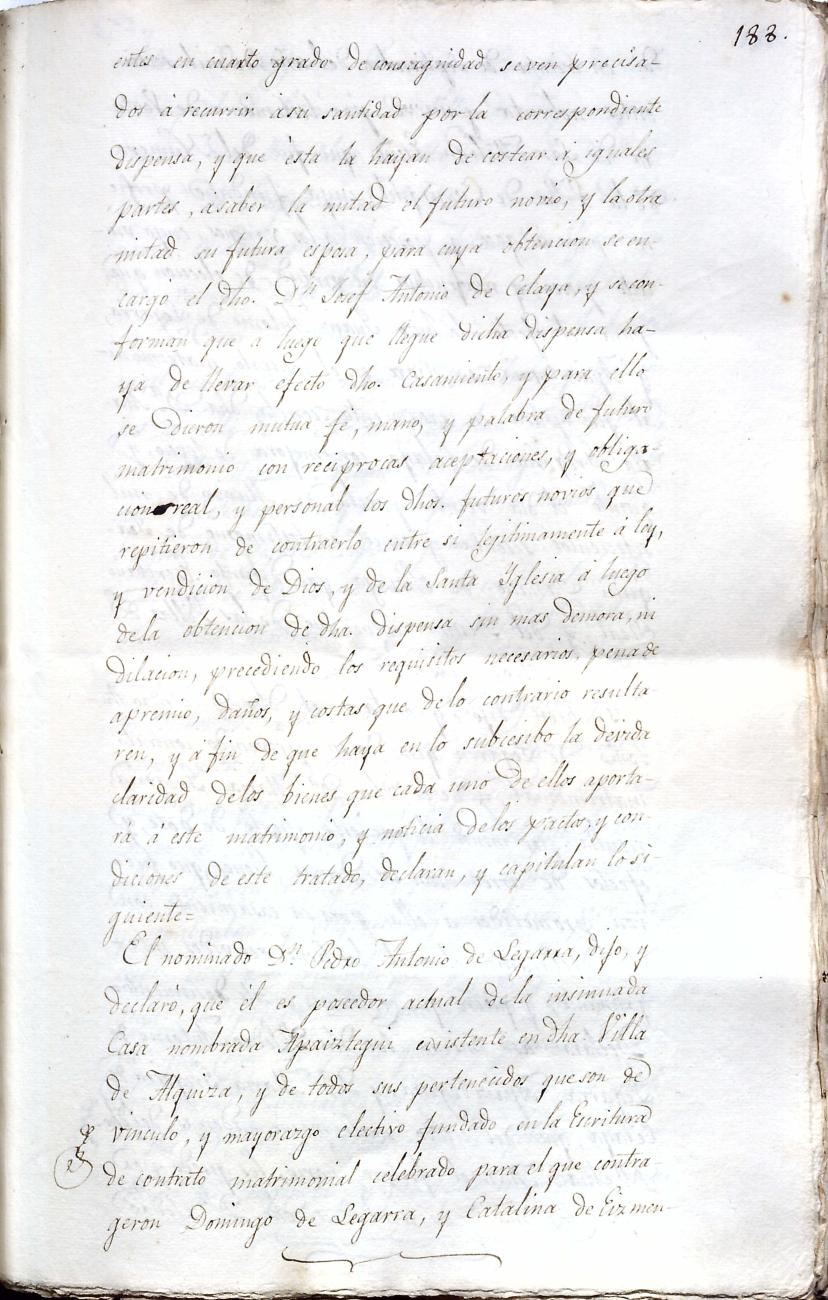 188.
entes en cuarto grado de consaguidad se ven precisa-
dos á recurrir à su santidad por la correspondiente
dispensa, y que ésta la hayan de costear á iguales
partes, à saber la mitad el futuro novio, y la otra
mitad su futura esposa, para cuya obtencion se en-
cargó el dho. Dn. Josef Antonio de Celaya, y se con-
forman que á luego que llegue dicha dispensa ha-
ya de llevar efecto dho. Casamiento, y para ello
se dieron mutua fé, mano, y palabra de futuro
matrimonio con reciprocas aceptaciones, y obliga-
cion real, y personal los dhos. futuros novios que
repitieron de contraerlo entre si lejitimamente á ley,
y vendicion de Dios, y de la Santa Yglesia á luego
de la obtencion de dha. dispensa sin mas demora, ni
dilacion, precediendo los requisitos necesarios, pena de
apremio, daños, y costas que de lo contrario resulta-
ren, y á fin de que haya en lo subcesibo la dévida
claridad de los bienes que cada uno de ellos aporta-
rá á este matrimonio, y noticia de los pactos, y con-
diciones de este tratado, declaran, y capitulan lo si-
guiente=
El nominado Dn. Pedro Antonio de Legarra, dijo, y
declaró, que él es poseedor actual de la insinuada
Casa nombrada Apaiztegui existente en dha. Villa
de Alquiza, y de todos sus pertenecidos que son de
vinculo, y mayorazgo electivo fundado en la Escritura
de contrato matrimonial celebrado para el que contra-
geron Domingo de Legarra, y Catalina de Eizmen-